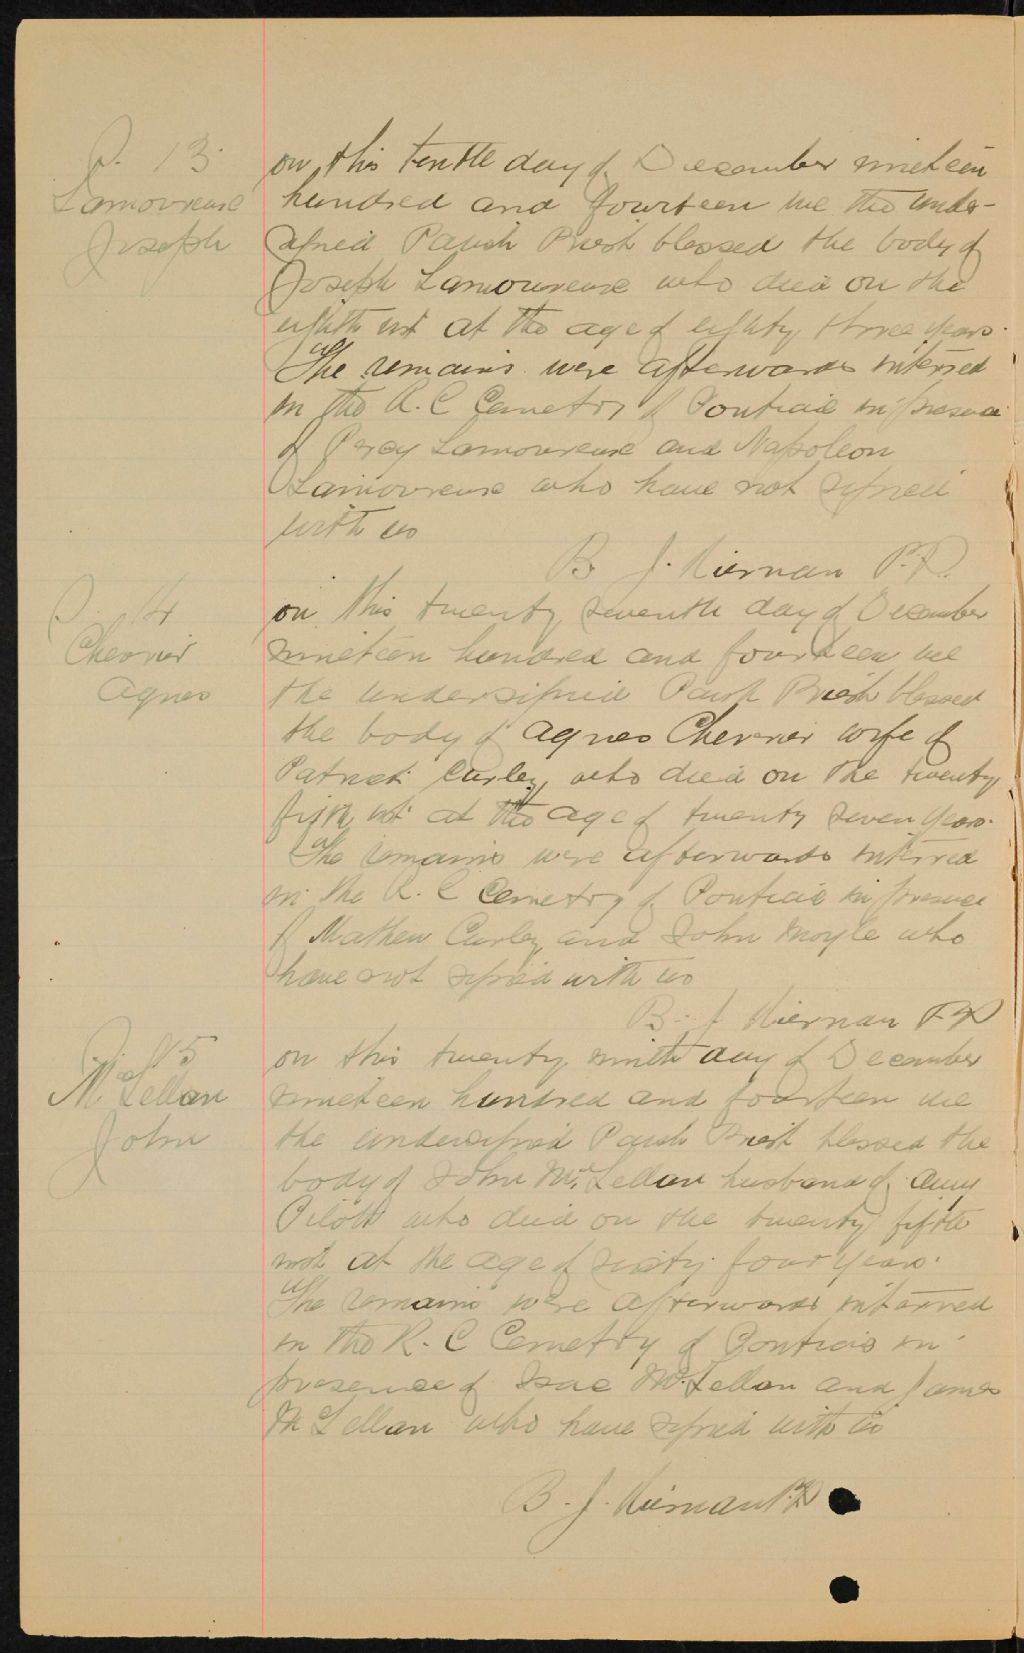 S. 13
Lamoureux
Joseph
on this tenth day of December nineteen
hundred and fourteen we the under-
signed Parish Priest blessed the body of
Joseph Lamoureux who died on the
eighth inst at the age of eighty three years.
The remains were afterwards interred
in the R. C Cemetry of Pontiac in presence
of Percy Lamoureux and Napoleon
Lamoureux who have not signed
with us
B. J. Kiernan P.P.
S. 14
Chevrier
Agnes
on this twenty seventh day of December
nineteen hundred and fourteen we
the undersigned Parish Priest blessed
the body of Agnes Chevrier wife of
Patrick Curley who died on the twenty
fifth inst at the age of twenty seven years.
The remains were afterwards interred
in the R. C Cemetry of Pontiac in presence
of Mathew Curley and John Moyle who
have not signed with us
B. J Kiernan P.P
S. 15
Mc Lellan
John
on this twenty ninth day of December
nineteen hundred and fourteen we
the undersigned Parish Priest blessed the
body of John Mc Lellan husband of Amy
who died on the twenty fifth
inst at the age of sixty four years.
The remains were afterwards interred
in the R. C Cemetry of Pontiac in
presence of Isac Mc Lellan and James
Mc Lellan who have signed with us
B. J. Kiernan P.P